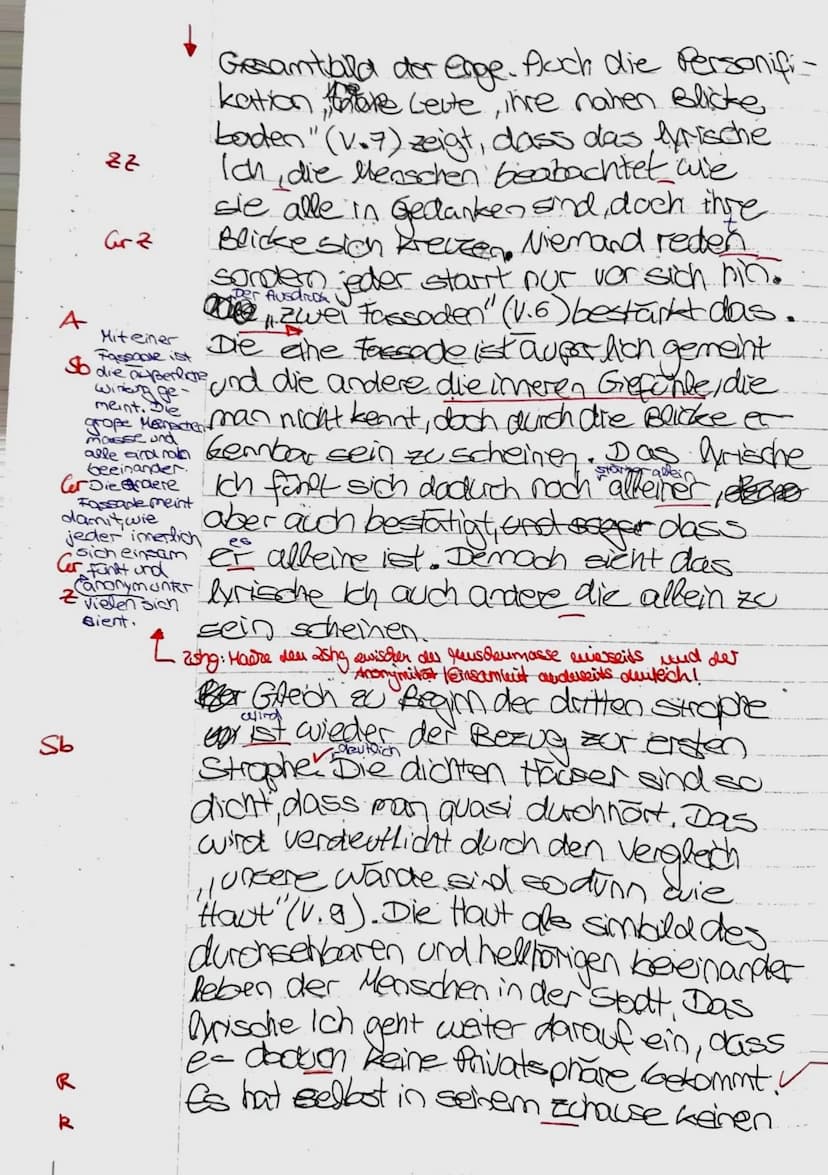 Gesamtbild der Enge. Auch die Personifi-
kation „ Leute, ihre nahen Blicke
baden" (V.7) zeigt, dass das lyrische
ZZ
Ich, die Menschen beobachtet wie
sie alle in Gedanken sind, doch ihre
Gr Z
Blicke sich kreuzen. Niemand redet
sondern jeder starrt nur vor sich hin.
Der Ausdruck
„zwei Fassaden" (V.6) bestärkt das.
A
Die eine Fassade ist äußerlich gemeint
Sb
und die andere die inneren Gefühle, die
man nicht kennt, doch durch die Blicke er-
kennbar sein zu scheinen. Das lyrische
stärker allein
Gr
Ich fühlt sich dadurch noch alleiner,
aber auch bestätigt, und sogar dass
es
Gr
er alleine ist. Demach sieht das
Z
lyrische Ich auch andere die allein zu
sein scheinen.
Mit einer
Fassade ist
die äußerliche
Wirkung ge-
meint. Die
große Menschen-
masse und
alle sind nah
beeinander.
Die andere
Fassade meint
damit, wie
jeder innerlich
sich einsam
fühlt und
anonym unter
vielen sich
sieht.
Zshg: Mache den Zshg zwischen der Menschenmasse einerseits und der
Anonymität/Einsamkeit anderseits deutlich!
Gleich zu Beginn der dritten Strophe
wird
Sb
ist wieder der Bezug zur ersten
deutlich
Strophe. Die dichten Häuser sind so
dicht, dass man quasi durchhört. Das
wird verdeutlicht durch den Vergleich
„unsere Wände sind so dünn wie
Haut" (V.9). Die Haut als simbild des
durchsehbaren und hellhörigen beieinander
leben der Menschen in der Stadt. Das
lyrische Ich geht weiter darauf ein, dass
R
es daduch keine Privatsphäre bekommt.
R
Es hat selbst in seinem zuhause keinen